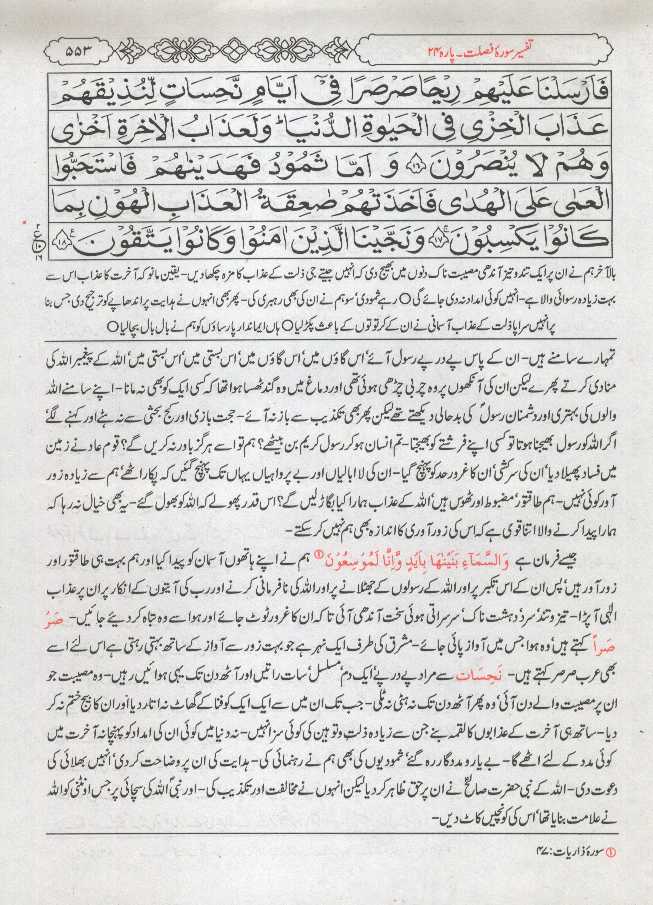 تفسیر سورۂ فصلت۔ پارہ ۲۴
۵۵۳
فَاَرْسَلْنَا عَلَيْهِمْ رِيْحًا صَرْصَرًا فِىْٓ اَيَّامٍ نَّحِسَاتٍ لِّنُذِيْقَهُمْ
عَذَابَ الْخِزْىِ فِى الْحَيٰوةِ الدُّنْيَا ؕ وَلَعَذَابُ الْاٰخِرَةِ اَخْزٰى
وَهُمْ لَا يُنْصَرُوْنَ ﴿۱۶﴾ وَ اَمَّا ثَمُوْدُ فَهَدَيْنٰهُمْ فَاسْتَحَبُّوا
الْعَمٰى عَلَى الْهُدٰى فَاَخَذَتْهُمْ صٰعِقَةُ الْعَذَابِ الْهُوْنِ بِمَا
كَانُوْا يَكْسِبُوْنَ ﴿۱۷﴾ وَنَجَّيْنَا الَّذِيْنَ اٰمَنُوْا وَكَانُوْا يَتَّقُوْنَ ﴿۱۸﴾
بالآخر ہم نے ان پر ایک تند و تیز آندھی مصیبت ناک دنوں میں بھیج دی کہ انہیں جیتے جی ذلت کے عذاب کا مزہ چکھا دیں۔ یقین مانو کہ آخرت کا عذاب اس سے
بہت زیادہ رسوائی والا ہے۔ انہیں کوئی امداد نہ دی جائے گی ○ رہے ثمودی' سو ہم نے ان کی بھی رہبری کی۔ پھر بھی انہوں نے ہدایت پر اندھاپے کو ترجیح دی جس بنا
پر انہیں سراپا ذلت کے عذاب آسمانی نے ان کے کرتوتوں کے باعث پکڑ لیا ○ ہاں ایماندار پارساؤں کو ہم نے بال بال بچا لیا ○
تمہارے سامنے ہیں۔ ان کے پاس پے در پے رسول آئے' اس گاؤں میں' اس گاؤں میں' اس بستی میں' اس بستی میں' اللہ کے پیغمبر اللہ کی
منادی کرتے پھرے لیکن ان کی آنکھوں پر وہ چربی چڑھی ہوئی تھی اور دماغ میں وہ گند ٹھسا ہوا تھا کہ کسی ایک کو بھی نہ مانا۔ اپنے سامنے اللہ
والوں کی بہتری اور دشمنان رسولؐ کی بدحالی دیکھتے تھے لیکن پھر بھی تکذیب سے باز نہ آئے۔ حجت بازی اور کج بحثی سے نہ ہٹے اور کہنے لگے'
اگر اللہ کو رسول بھیجنا ہوتا تو کسی اپنے فرشتے کو بھیجتا۔ تم انسان ہو کر رسول کریم بن بیٹھے؟ ہم تو اسے ہرگز باور نہ کریں گے؟ قوم عاد نے زمین
میں فساد پھیلا دیا' ان کی سرکشی' ان کا غرور حد کو پہنچ گیا۔ ان کی لاابالیاں اور بے پرواہیاں یہاں تک پہنچ گئیں کہ پکار اٹھے' ہم سے زیادہ زور
آور کوئی نہیں۔ ہم طاقتور' مضبوط اور ٹھوس ہیں' اللہ کے عذاب ہمارا کیا بگاڑ لیں گے؟ اس قدر پھولے کہ اللہ کو بھول گئے۔ یہ بھی خیال نہ رہا کہ
ہمارا پیدا کرنے والا اتنا قوی ہے کہ اس کی زور آوری کا اندازہ بھی ہم نہیں کر سکتے۔
جیسے فرمان ہے وَالسَّمَآءَ بَنَيْنٰهَا بِاَيْدٍ وَّاِنَّا لَمُوْسِعُوْنَ ① ہم نے اپنے ہاتھوں آسمان کو پیدا کیا اور ہم بہت ہی طاقتور اور
زور آور ہیں' پس ان کے اس تکبر پر اور اللہ کے رسولوں کے جھٹلانے پر اور اللہ کی نافرمانی کرنے اور رب کی آیتوں کے انکار پر ان پر عذاب
الٰہی آ پڑا۔ تیز و تند' سرد' دہشت ناک' سرسراتی ہوئی سخت آندھی آئی تاکہ ان کا غرور ٹوٹ جائے اور ہوا سے وہ تباہ کر دیئے جائیں۔ صَرْ
صَراً کہتے ہیں' وہ ہوا' جس میں آواز پائی جائے۔ مشرق کی طرف ایک نہر ہے جو بہت زور سے آواز کے ساتھ بہتی رہتی ہے اس لئے اسے
بھی عرب صرصر کہتے ہیں۔ نَحِسَات سے مراد پے در پے' ایک دم' مسلسل' سات راتیں اور آٹھ دن تک یہی ہوائیں رہیں۔ وہ مصیبت جو
ان پر مصیبت والے دن آئی' وہ پھر آٹھ دن تک نہ ہٹی نہ ٹلی۔ جب تک ان میں سے ایک ایک کو فنا کے گھاٹ نہ اتار دیا اور ان کا بیج ختم نہ کر
دیا۔ ساتھ ہی آخرت کے عذابوں کا لقمہ بنے جن سے زیادہ ذلت و توہین کی کوئی سزا نہیں۔ نہ دنیا میں کوئی ان کی امداد کو پہنچا نہ آخرت میں
کوئی مدد کے لئے اٹھے گا۔ بے یار و مددگار رہ گئے' ثمودیوں کی بھی ہم نے رہنمائی کی۔ ہدایت کی ان پر وضاحت کر دی' انہیں بھلائی کی
دعوت دی۔ اللہ کے نبی حضرت صالحؑ نے ان پر حق ظاہر کر دیا لیکن انہوں نے مخالفت اور تکذیب کی۔ اور نبی اللہ کی سچائی پر جس اونٹنی کو اللہ
نے علامت بنایا تھا' اس کی کونچیں کاٹ دیں۔
① سورۂ ذاریات: ۴۷